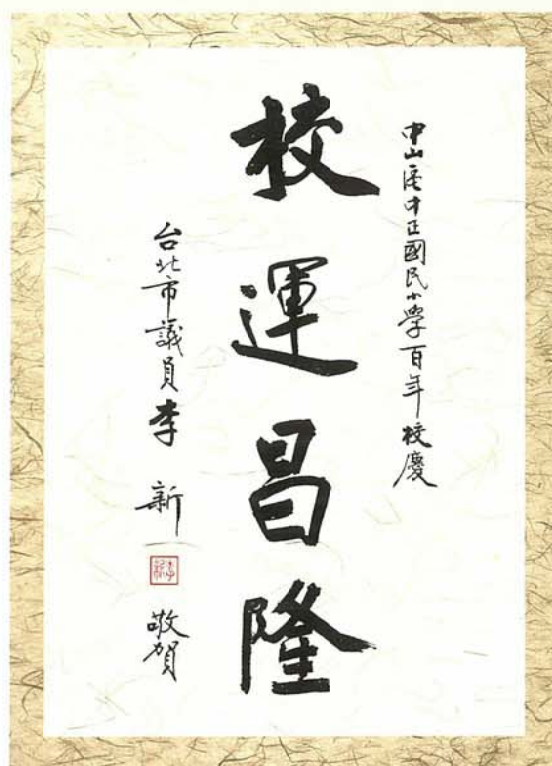 中山區中正國民小學百年校慶
校運昌隆
台北市議員李新 敬賀